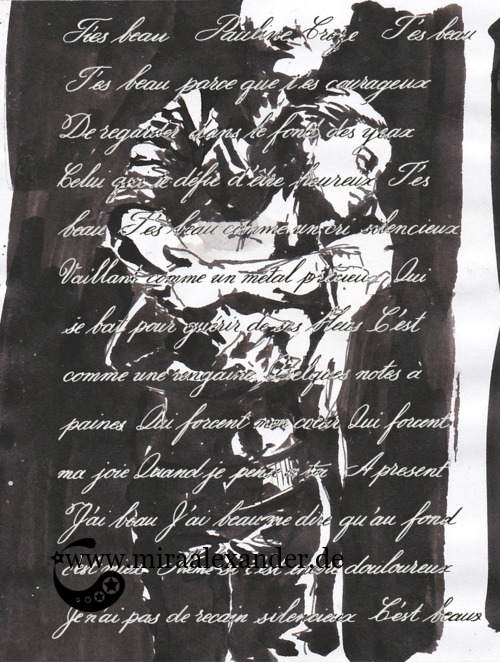 T'es beau Pauline Croze T'es beau
T'es beau parce que t'es courageux
De regarder dans le fond des yeux
Celui qui te défir d'être heureux T'es
beau T'es beau comme un cri silencieux
Vaillant comme un métal précieux Qui
se bat pour guérir de ses bleus C'est
comme une rengaine Quelques notes à
peines Qui forcent mon cœur Qui forcent
ma joie Quand je pense à A present
J'ai beau J'ai beau me dire qu'au fond
c'est mieux Même si c'est encore douloureux
www.miraalexander.de
Je n'ai pas de recoin silencieux C'est beaux